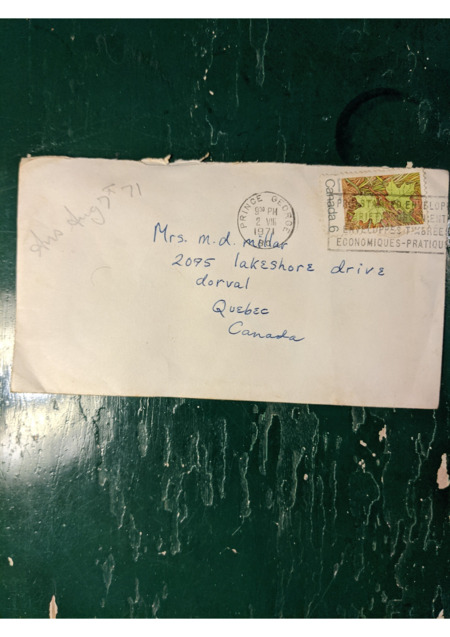 Aug 71
PRINCE GEORGE
PM
2 VIII
1971
Canada 6
ENVELOPPES TIMBRÉES
ECONOMIQUES-PRATIQU
Mrs. m.d. millar
2095 lakeshore drive
dorval
Quebec
Canada